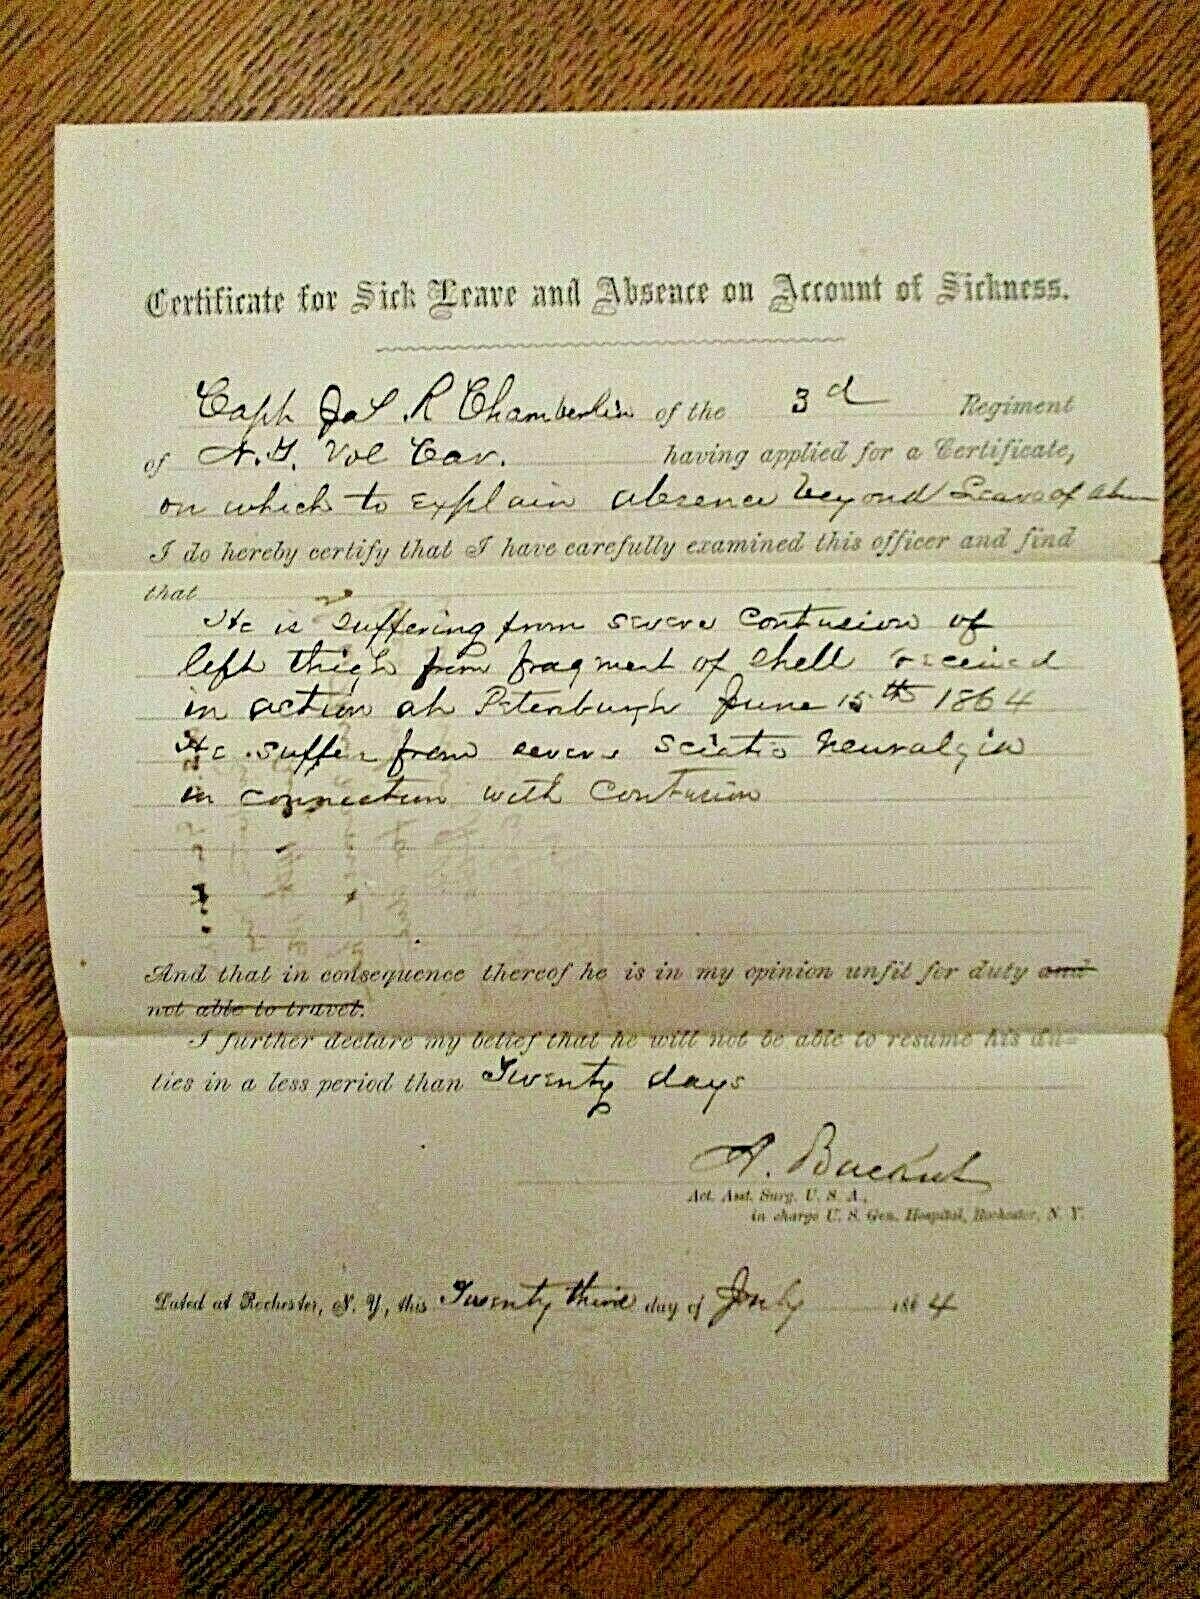 Certificate for Sick Leave and Absence on Account of Sickness.
Capt Jas. R Chamberlin of the 3d Regiment
of N.Y. Vol Cav. having applied for a Certificate,
on which to explain absence beyond Leave of
I do hereby certify that I have carefully examined this officer and find
that
He is suffering from severe contusion of
left thigh from fragment of shell received
in action at Petersburgh June 15th 1864
He suffer from severe sciatic Neuralgia
in connection with Contusion
And that in consequence thereof he is in my opinion unfit for duty and
not able to travel.
I further declare my belief that he will not be able to resume his du=
ties in a less period than Twenty days
A. Backus
Act. Asst. Surg. U. S. A.,
in charge U. S. Gen. Hospital, Rochester, N. Y.
Dated at Rochester, N. Y., this Twenty third day of July 1864